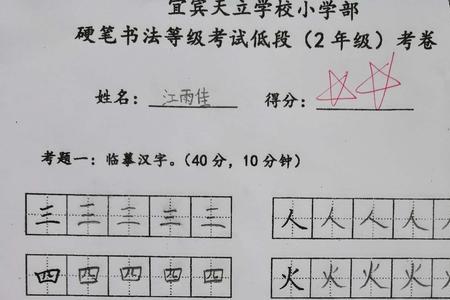 宜宾天立学校小学部
硬笔书法等级考试低段（2年级）考卷
姓名：江雨佳 得分：
考题一：临摹汉字。（40分，10分钟）
三三三三三 人人人人人
四四四四四 火火火火火